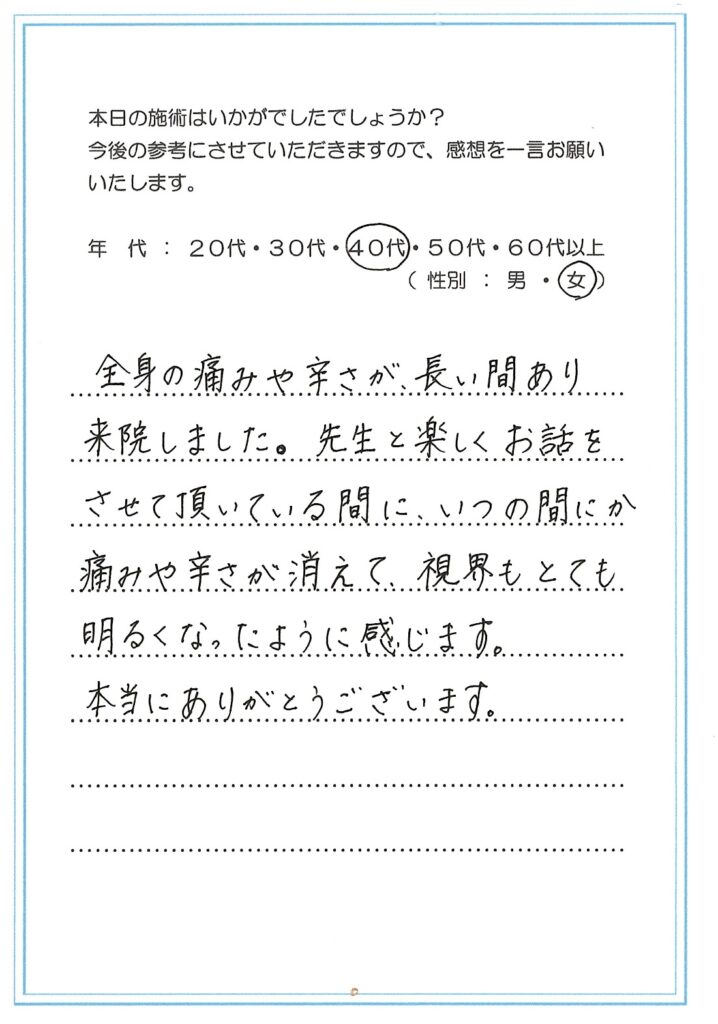 本日の施術はいかがでしたでしょうか?
今後の参考にさせていただきますので、感想を一言お願い
いたします。
年 代 : 20代・30代・40代・50代・60代以上
( 性別 : 男 ・ 女 )
全身の痛みや辛さが、長い間あり
来院しました。先生と楽しくお話を
させて頂いている間に、いつの間にか
痛みや辛さが消えて、視界もとても
明るくなったように感じます。
本当にありがとうございます。